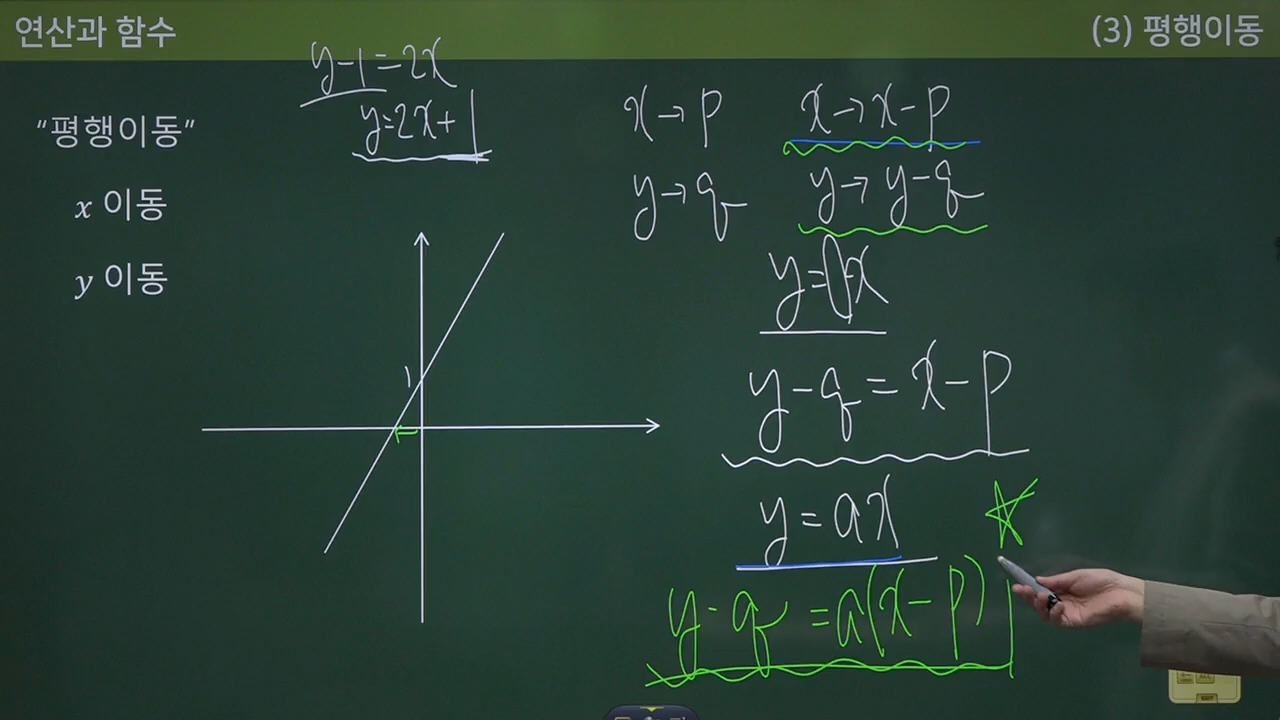 연산과 함수
(3) 평행이동
"평행이동"
x 이동
y 이동
y-1=2x
y=2x+1
x→p
x→x-p
y→q
y→y-q
1
y=x
y-q=x-p
y=ax
y-q=a(x-p)